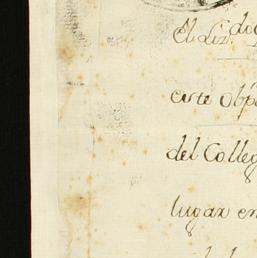 El Liz.do
este Obp
del Colleg
lugar en